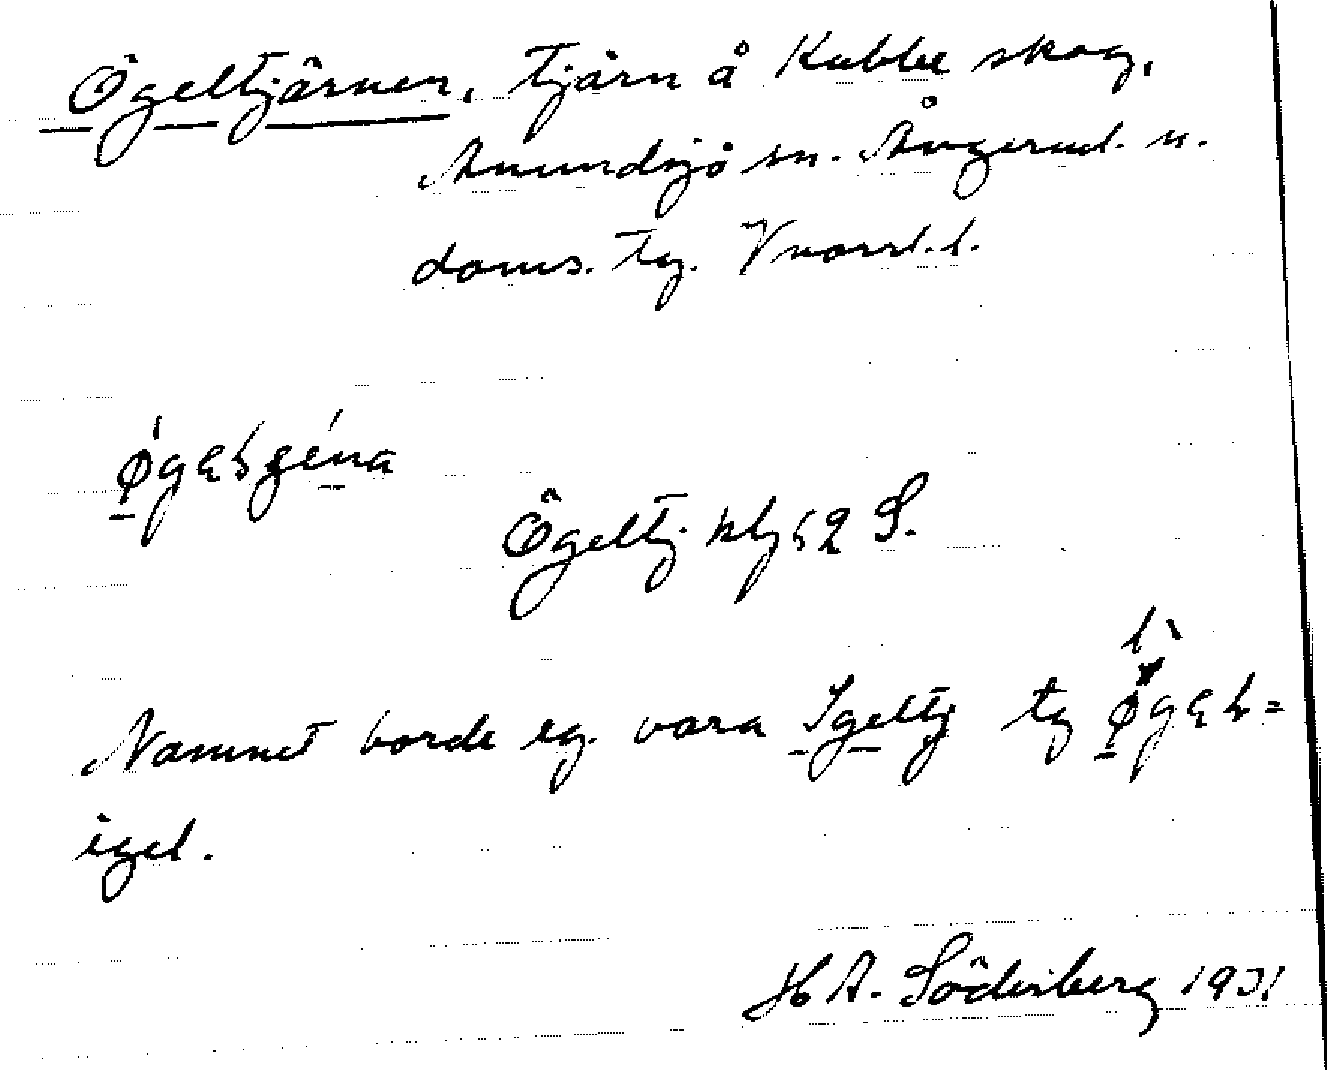 Ögeltjärnen, tjärn å Kubbe skog,
Anundsjö sn. Ångerml. n.
doms. tg. Vnorrl. l.
Ögeltj. S.
Namnet borde eg. vara Igeltj ty
igel.
H A. Söderberg 1931